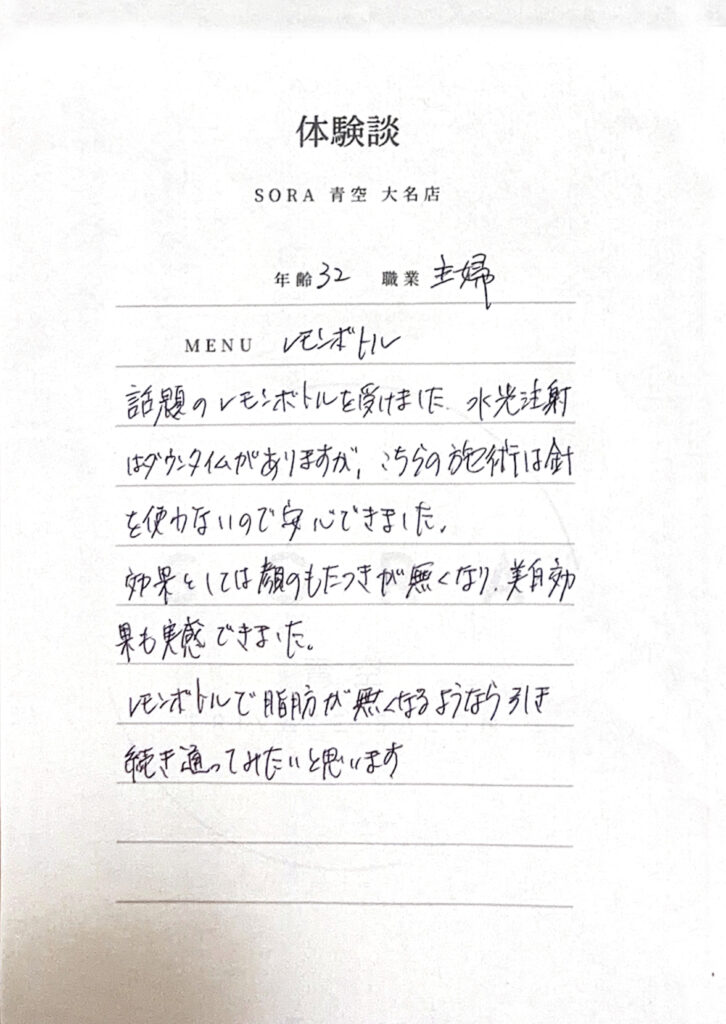 体験談
SORA 青空 大名店
年齢 32 職業 主婦
MENU レモンボトル
話題のレモンボトルを受けました 水光注射
はダウンタイムがありますが、こちらの施術は針
を使わないので安心できました。
効果としては顔のもたつきが無くなり、美白効
果も実感できました。
レモンボトルで脂肪が無くなるようなら引き
続き通ってみたいと思います